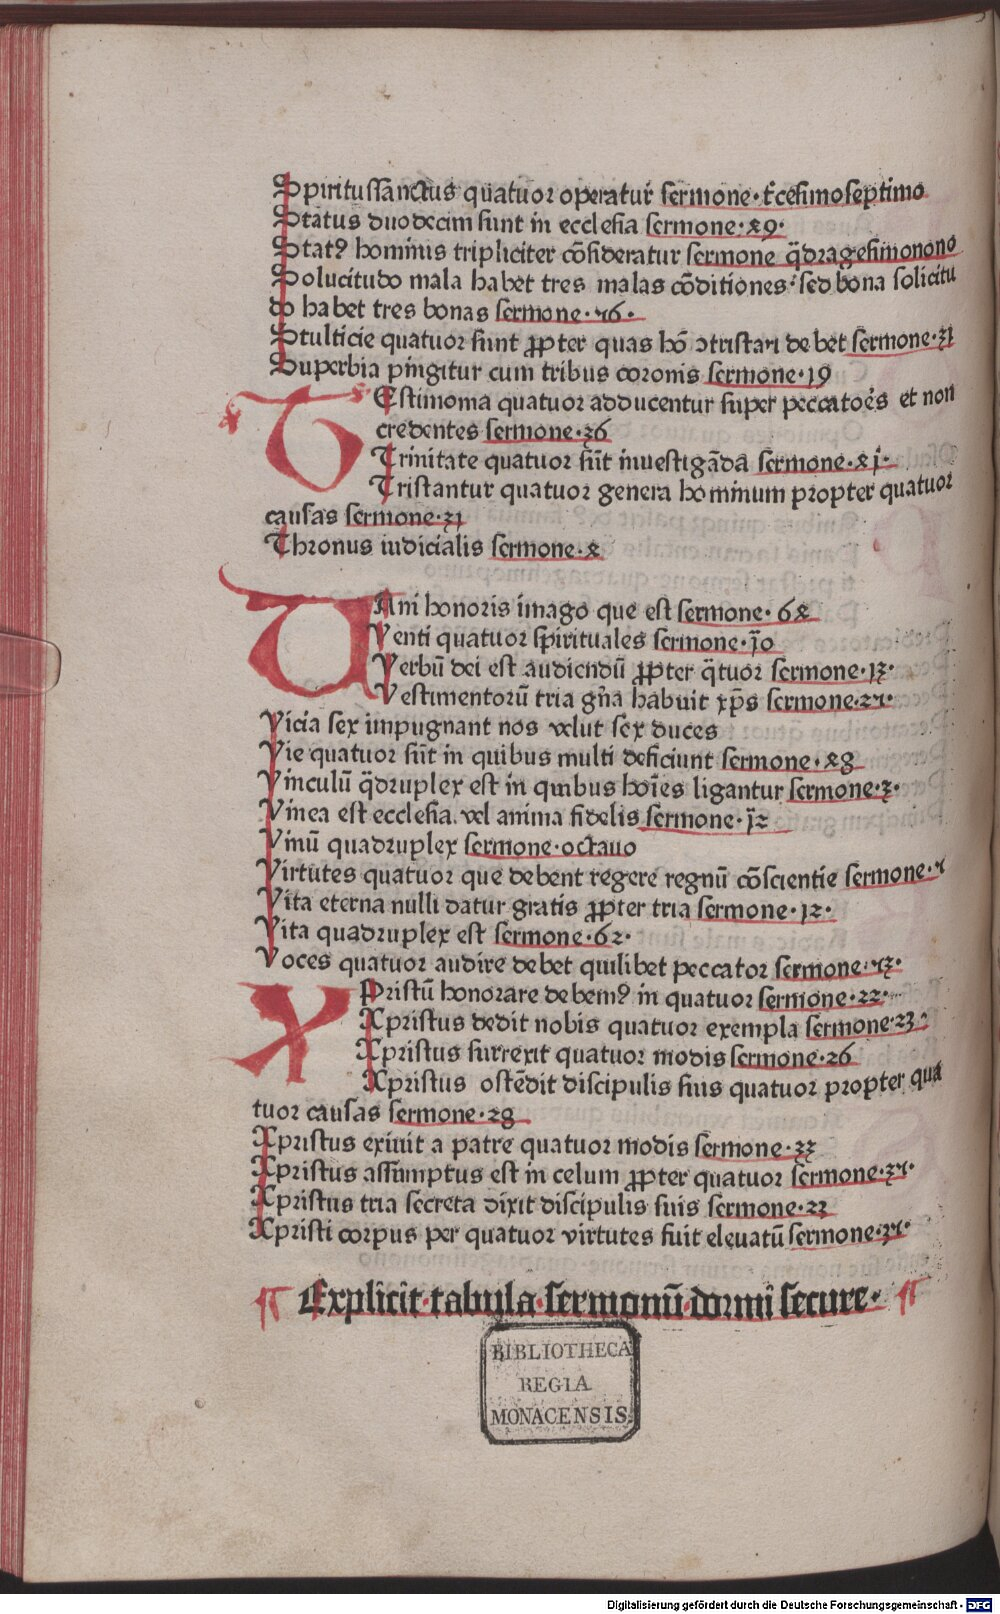 Spiritussanctus quatuor operatur̄ sermone·t̄cesimoseptimo
Status duodecim sunt in ecclesia sermone·49·
Statꝰ hominis tripliciter cōsideratur sermone q̄dragesimonono
Solucitudo mala habet tres malas cōditiones· sed bona solicitu
do habet tres bonas sermone·16·
Stulticie quatuor sunt ꝓpter quas hō ↄtristari debet sermone·31
Superbia pingitur cum tribus coronis sermone·19
TEstimonia quatuor adducentur super peccatores et non
credentes sermone·36
Trinitate quatuor sūt inuestigāda sermone·41·
Tristantur quatuor genera hominum propter quatuor
causas sermone·31
Thronus iudicialis sermone·4
VAni honoris imago que est sermone·64
Venti quatuor spirituales sermone·10
Verbū dei est audiendū ꝓpter q̄tuor sermone·13·
Vestimentorū tria gn̄a habuit xp̄s sermone·27·
Vicia sex impugnant nos velut sex duces
Vie quatuor sūt in quibus multi deficiunt sermone·48
Vinculū q̄druplex est in quibus hoīes ligantur sermone·3·
Vinea est ecclesia vel anima fidelis sermone·12
Vinū quadruplex sermone·octauo
Virtutes quatuor que debent regere regnū cōscientie sermone·1
Vita eterna nulli datur gratis ꝓpter tria sermone·12·
Vita quadruplex est sermone·62·
Voces quatuor audire debet quilibet peccator sermone·13·
XPristū honorare debemꝰ in quatuor sermone·22·
Xpristus dedit nobis quatuor exempla sermone·23·
Xpristus surrexit quatuor modis sermone·26
Xpristus ostēdit discipulis suis quatuor propter qua
tuor causas sermone·28
Xpristus exiuit a patre quatuor modis sermone·33
Xpristus assumptus est in celum ꝓpter quatuor sermone·37·
Xpristus tria secreta dixit discipulis suis sermone·22
Xpristi corpus per quatuor virtutes fuit eleuatū sermone·37·
¶ Explicit·tabula·sermonū·dormi secure· ¶
BIBLIOTHECA
REGIA
MONACENSIS
Digitalisierung gefördert durch die Deutsche Forschungsgemeinschaft - DFG